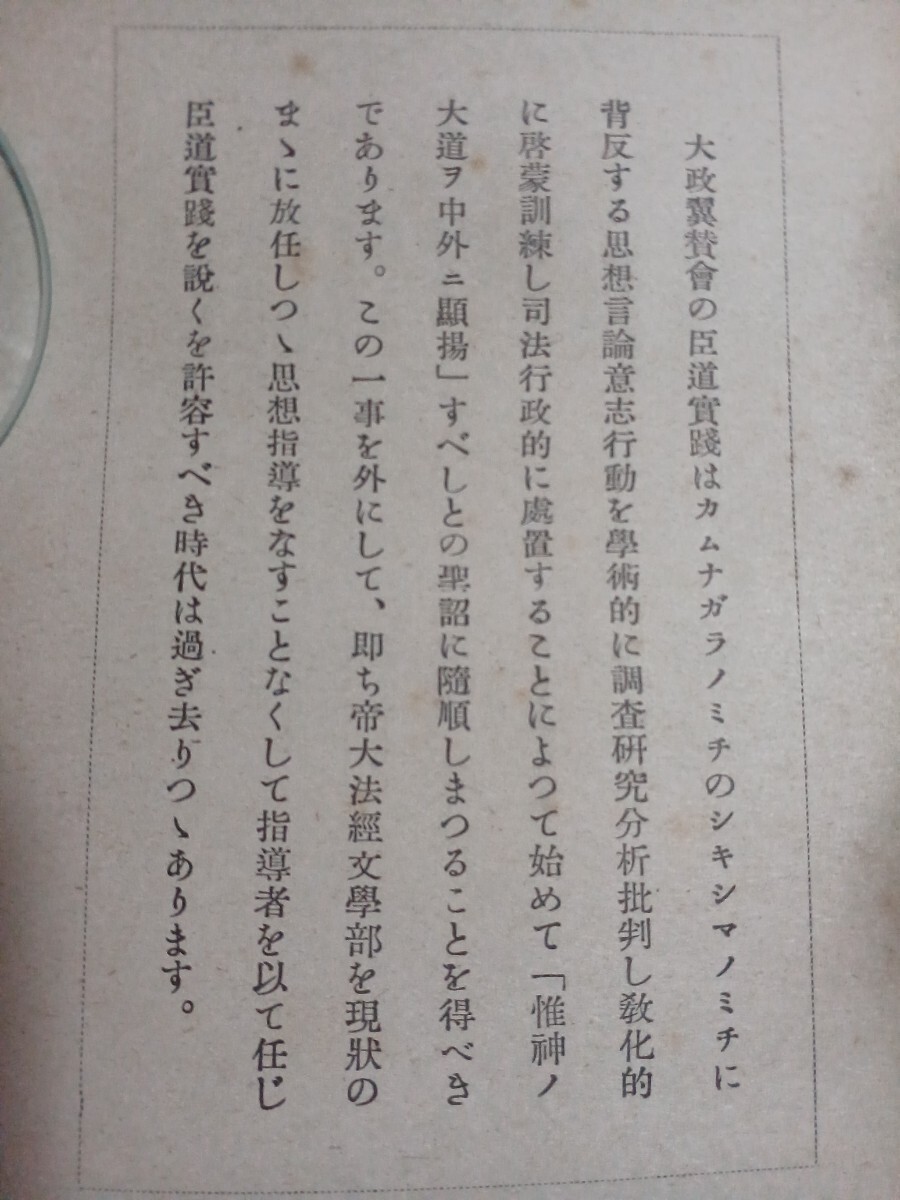 大政翼賛會の臣道實踐はカムナガラノミチのシキシマノミチに
背反する思想言論意志行動を學術的に調査硏究分析批判し敎化的
に啓蒙訓練し司法行政的に處置することによつて始めて「惟神ノ
大道ヲ中外ニ顯揚」すべしとの聖詔に隨順しまつることを得べき
であります。この一事を外にして、卽ち帝大法經文學部を現狀の
まゝに放任しつゝ思想指導をなすことなくして指導者を以て任じ
臣道實踐を說くを許容すべき時代は過ぎ去りつゝあります。